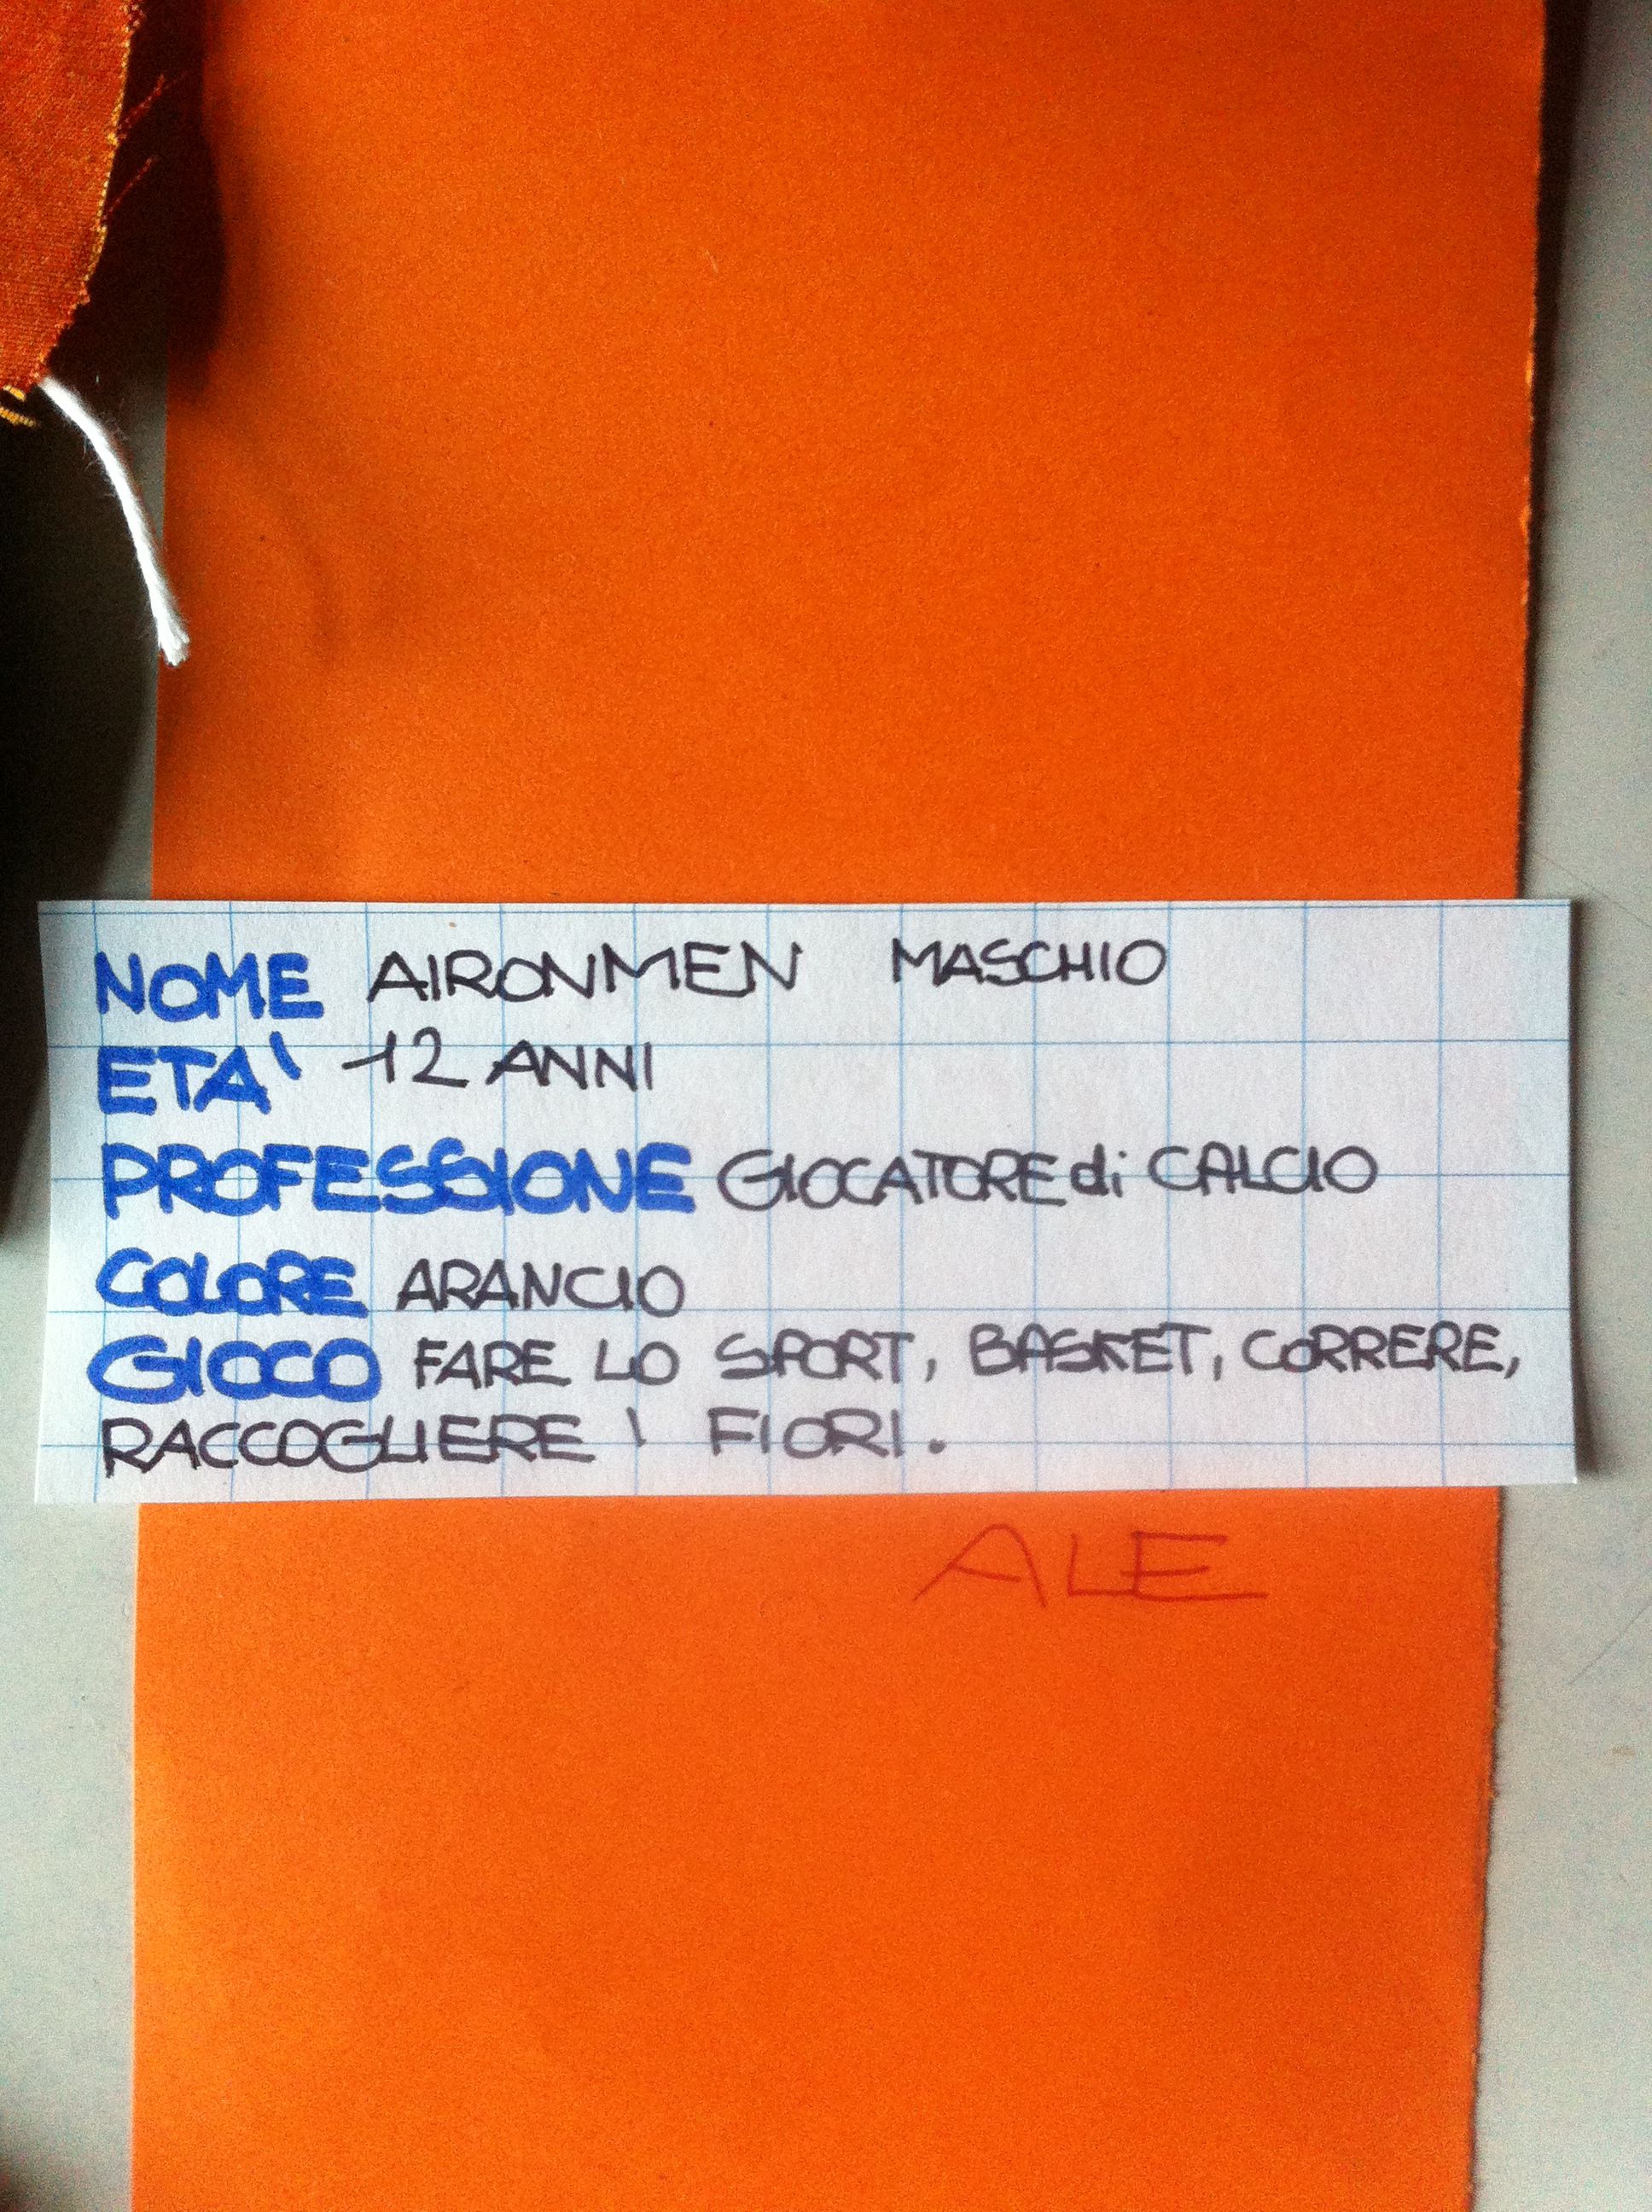 NOME AIRONMEN MASCHIO
ETA' 12 ANNI
PROFESSIONE GIOCATORE di CALCIO
COLORE ARANCIO
GIOCO FARE LO SPORT, BASKET, CORRERE,
RACCOGLIERE I FIORI.
ALE